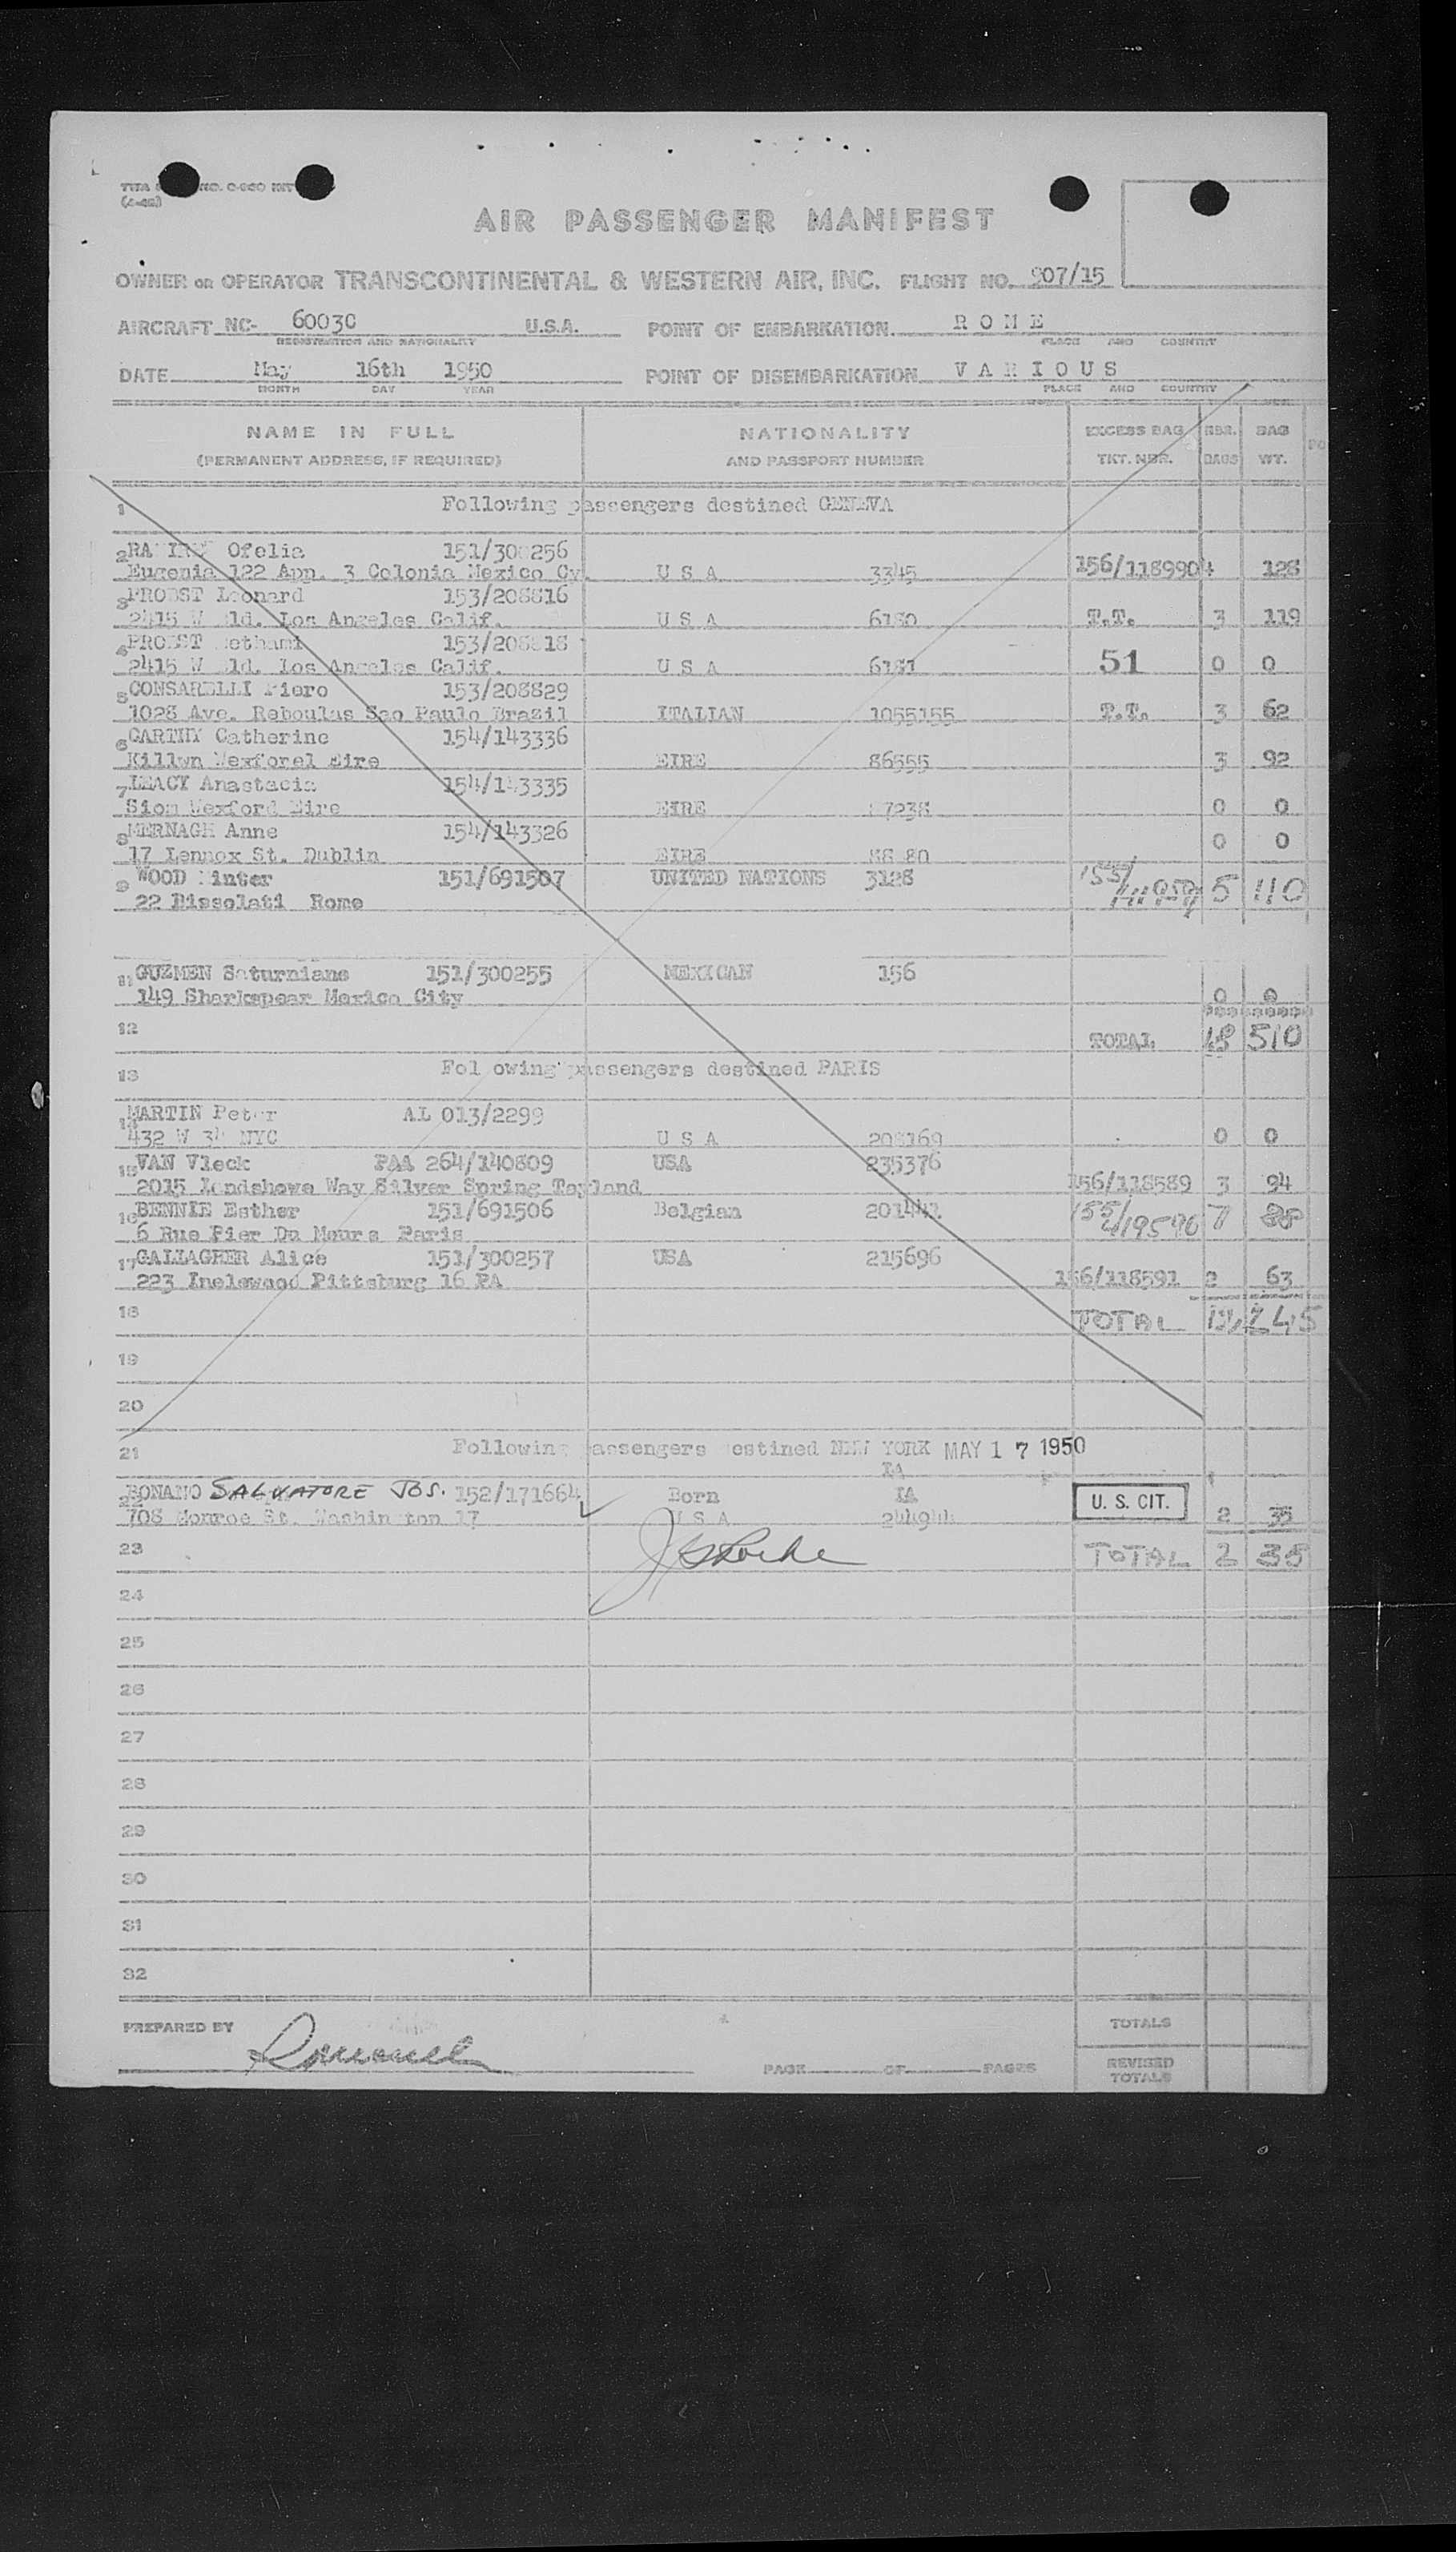 AIR PASSENGER MANIFEST
OWNER OR OPERATOR TRANSCONTINENTAL & WESTERN AIR, INC. FLIGHT NO. 907/15
AIRCRAFT NC- 60030 U.S.A. POINT OF EMBARKATION R O M E
REGISTRATION AND NATIONALITY PLACE AND COUNTRY
DATE May 16th 1950 POINT OF DISEMBARKATION V A R I O U S
MONTH DAY YEAR PLACE AND COUNTRY
NAME IN FULL NATIONALITY EXCESS BAG NBR. BAG
(PERMANENT ADDRESS, IF REQUIRED) AND PASSPORT NUMBER TKT. NBR. BAGS WT.
1 Following passengers destined GENEVA
2 Ofelia
Eugenia 122 App. 3 Colonia Mexico Cy. U S A 3345 156/118990 4 128
3 PROBST Leonard 153/208816
2415 W ld. Los Angeles Calif. U S A 6180 T.T. 3 119
4 PROBST 153/208818
2415 W ld. Los Angeles Calif. U S A 6181 51 0 0
5 CONSARELLI Piero 153/208829
1028 Ave. Reboulas Sao Paulo Brazil ITALIAN 1055155 T.T. 3 62
6 CARTHY Catherine 154/143336
Killwn Wexforel Eire EIRE 86555 3 92
7 LEACY Anastacia 154/143335
Sion Wexford Eire EIRE 0 0
8 MERNAGH Anne 154/143326
17 Lennox St. Dublin EIRE 0 0
9 WOOD 151/691507 UNITED NATIONS 3128 155/ 5 110
22 Bissolati Rome
11 GUZMEN Saturniano 151/300255 MEXICAN 156
149 Sharkspear Mexico City 0 0
12 TOTAL 18 510
13 Fol owing passengers destined PARIS
14 MARTIN Peter AL 013/2299
432 W 34 NYC U S A 208169 0 0
15 VAN Vleck PAA 264/140809 USA 235376
2015 Landshowe Way Silver Spring Tayland 156/118589 3 94
16 BENNIE Esther 151/691506 Belgian 201441 155/ 7
6 Rue Pier Du Mours Paris
17 GALLAGHER Alice 151/300257 USA 215696
223 Inelewood Pittsburg 16 PA 156/118591 2 63
18 TOTAL 12 245
19
20
21 Following passengers estined NEW YORK MAY 17 1950
IA
22 BONANO SALVATORE JOS. 152/171664 Born IA U. S. CIT.
708 Monroe St. Washin ton 17 U S A 244944 2 35
23 TOTAL 2 35
24
25
26
27
28
29
30
31
32
PREPARED BY TOTALS
PAGE OF PAGES REVISED
TOTALS